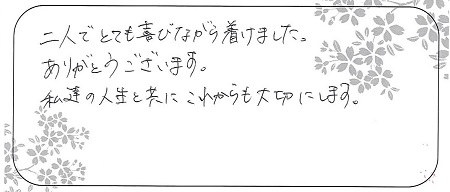 二人でとても喜びながら着けました。
ありがとうございます。
私達の人生と共にこれからも大切にします。